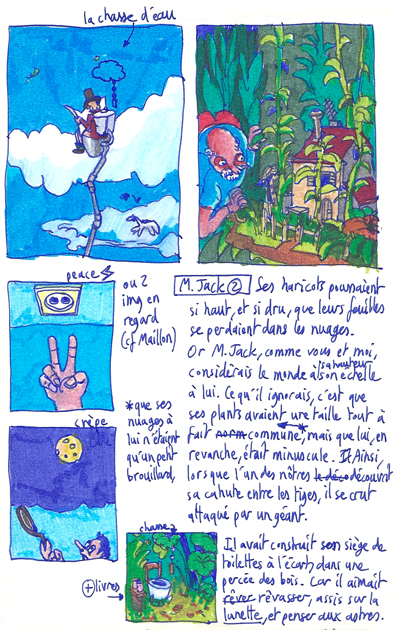 la chasse d'eau
peace
ou 2
img en
regard
(cf Maillon)
M. Jack ② Ses haricots poussaient
si haut, et si dru, que leurs feuilles
se perdaient dans les nuages.
Or M. Jack, comme vous et moi,
considérait le monde à son échelle
sa hauteur
à lui. Ce qu'il ignorait, c'est que
ses plants avaient une taille tout à
fait commune,* mais que lui, en
revanche, était minuscule. Ainsi,
lorsque l'un des nôtres découvrit
sa cahute entre les tiges, il se crut
attaqué par un géant.
*que ses
nuages à
lui n'étaient
qu'un petit
brouillard,
crêpe
chasse 2
+ livres
Il avait construit son siège de
toilettes à l'écart, dans une
percée des bois. Car il aimait
rêver rêvasser, assis sur la
lunette, et penser aux astres.